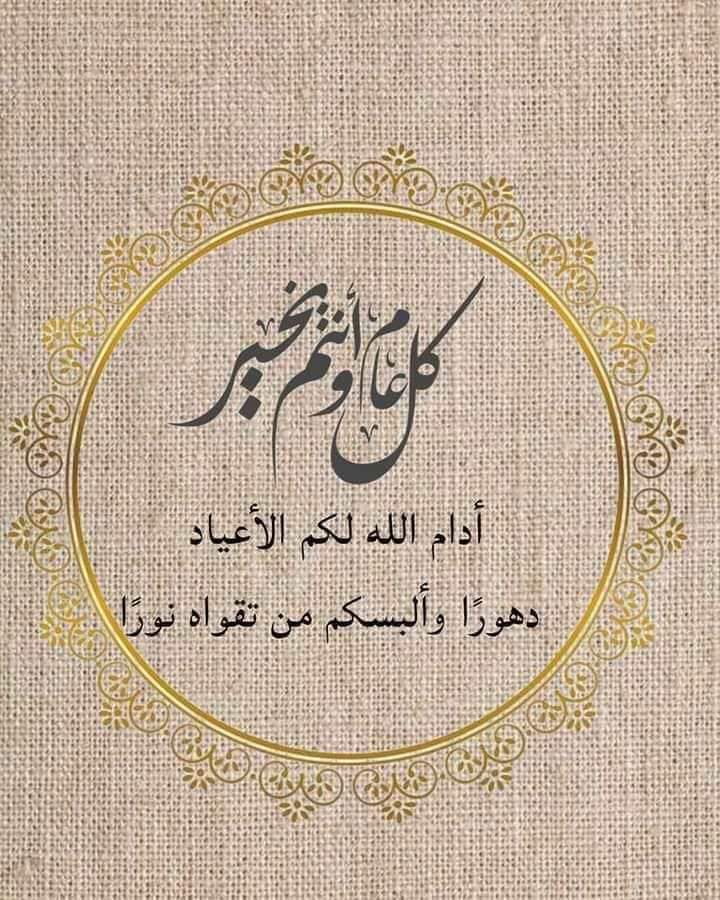 كل عام وأنتم بخير
أدام الله لكم الأعياد
دهورًا وألبسكم من تقواه نورًا